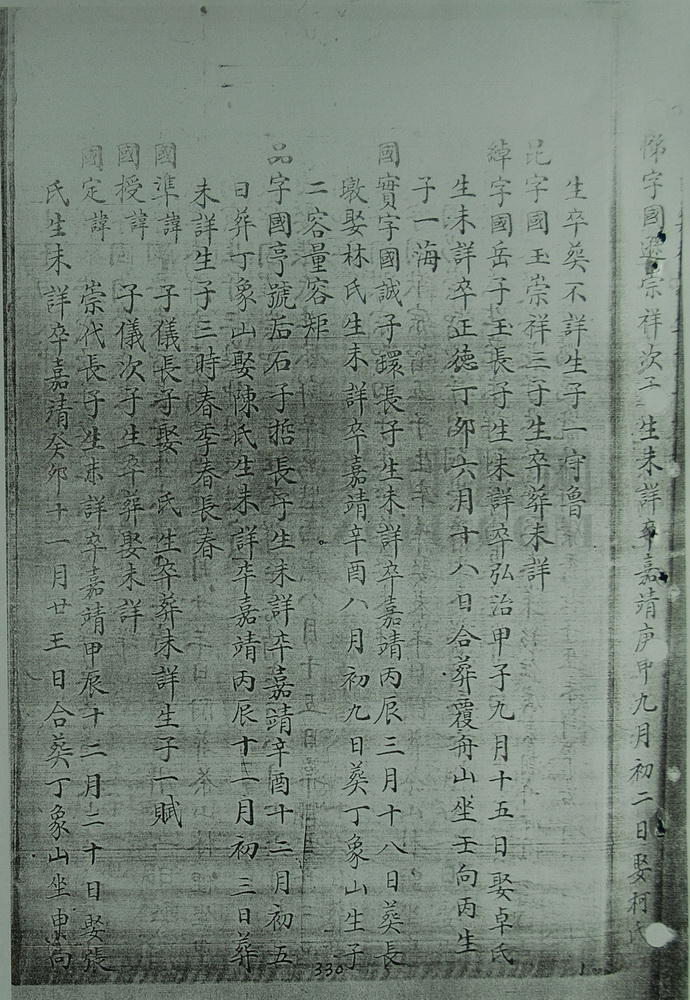 悌字國　崇祥次子　生未詳卒嘉靖庚申九月初二日娶柯氏
生卒葵不詳生子一守魯
昆字國玉崇祥三子生卒葬未詳
綽字國岳子玉長子生未詳卒弘治甲子九月十五日娶卓氏
生未詳卒正德丁卯六月十八日合葬覆舟山坐壬向丙生
子一海
國實字國誠子環長子生未詳卒嘉靖丙辰三月十八日葵長
墩娶林氏生未詳卒嘉靖辛酉八月初九日葵丁象山生子
二容量容矩
品字國亨號后石子哲長子生未詳卒嘉靖辛酉十二月初五
日葬丁象山娶陳氏生未詳卒嘉靖丙辰十一月初三日葬
未詳生子三時春季春長春
國準諱　子儀長子娶　氏生卒葬未詳生子一賦
國授諱　子儀次子生卒葬娶未詳
國定諱　崇代長子生未詳卒嘉靖甲辰十二月二十日娶張
氏生未詳卒嘉靖癸卯十一月廿五日合葵丁象山坐申向
330